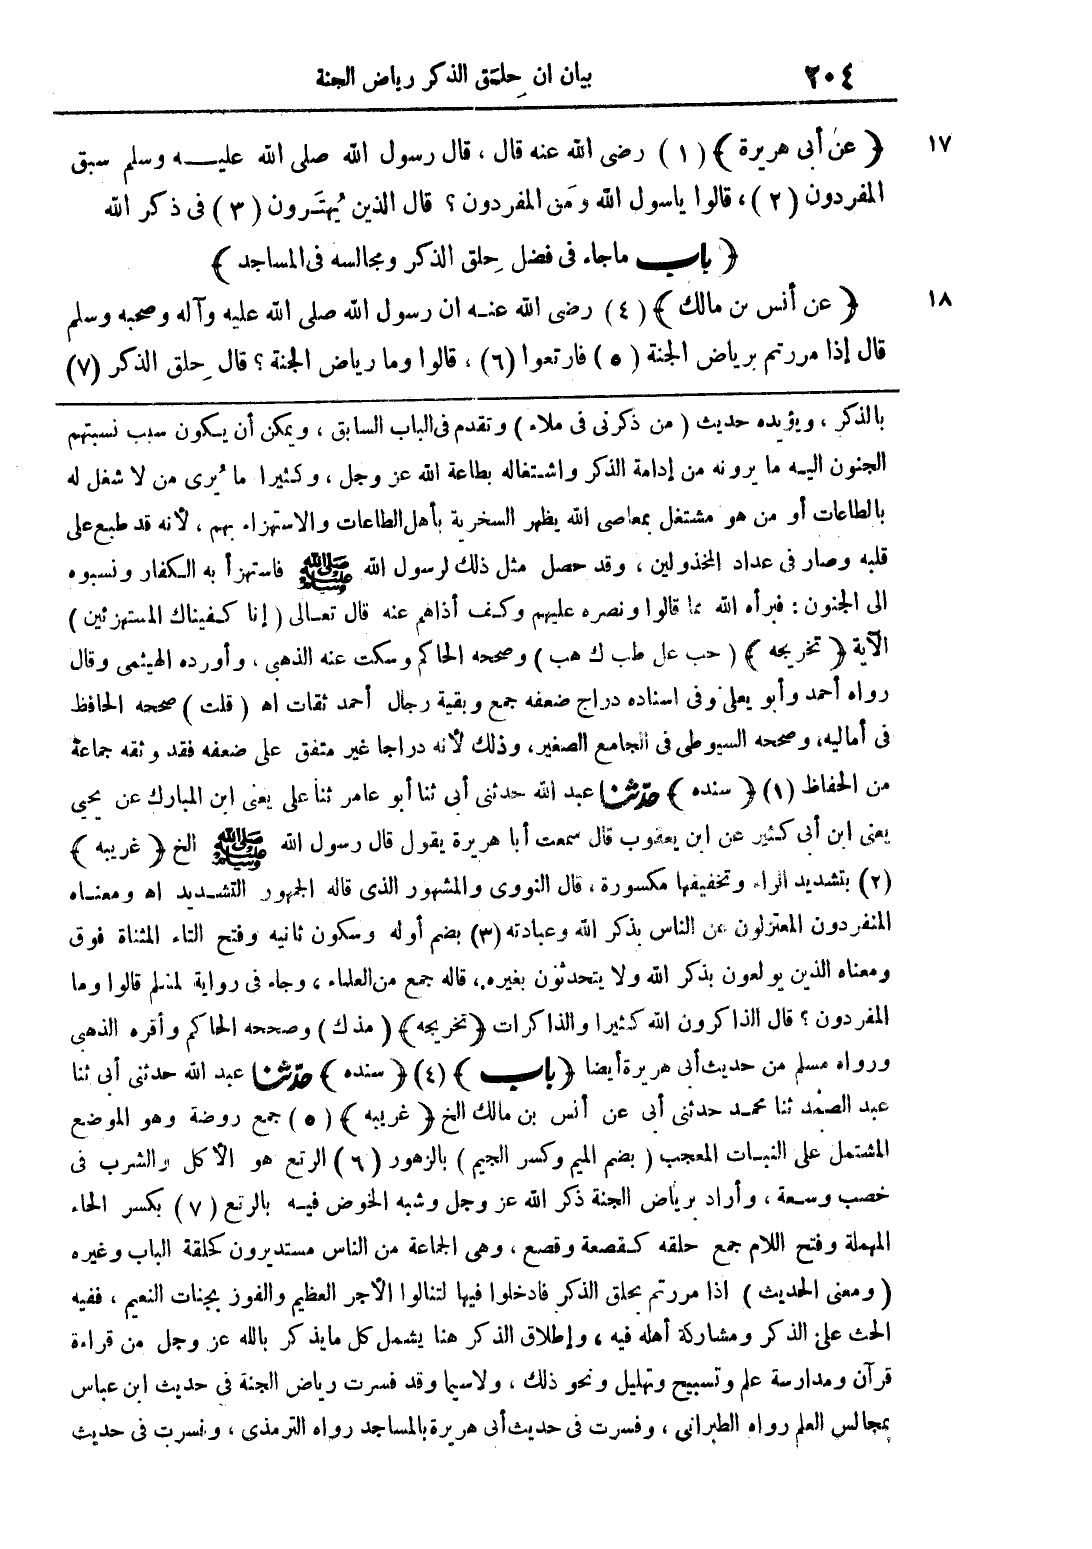 ٢٠٤ بيان ان حِلَق الذكر رياض الجنة
١٧ ﴿ عن أبى هريرة ﴾ ( ١ ) رضى الله عنه قال ، قال رسول الله صلى الله عليه وسلم سبق
المفردون ( ٢ ) ، قالوا ياسول الله ومَن المفردون ؟ قال الذين يُهتَرون ( ٣ ) فى ذكر الله
﴿ باب ماجاء فى فضل حِلق الذكر ومجالسه فى المساجد ﴾
١٨ ﴿ عن أنس بن مالك ﴾ ( ٤ ) رضى الله عنه ان رسول الله صلى الله عليه وآله وصحبه وسلم
قال إذا مررتم برياض الجنة ( ٥ ) فارتعوا ( ٦ ) ، قالوا وما رياض الجنة ؟ قال حِلق الذكر ( ٧ )
بالذكر ، ويؤيده حديث ( من ذكرنى فى ملاء ) وتقدم فى الباب السابق ، ويمكن أن يكون سبب نسبتهم
الجنون اليه ما يرونه من إدامة الذكر واشتغاله بطاعة الله عز وجل ، وكثيرا ما يُرى من لا شغل له
بالطاعات أو من هو مشتغل بمعاصى الله يظهر السخرية بأهل الطاعات والاستهزاء بهم ، لأنه قد طبع على
قلبه وصار فى عداد المخذولين ، وقد حصل مثل ذلك لرسول الله ﷺ فاستهزأ به الكفار ونسبوه
الى الجنون : فبرأه الله مما قالوا ونصره عليهم وكف أذاهم عنه قال تعالى ( إنا كفيناك المستهزئين )
الآية ﴿ تخريجه ﴾ ( حب عل طب ك هب ) وصححه الحاكم وسكت عنه الذهبى ، وأورده الهيثمى وقال
رواه أحمد وأبو يعلى وفى اسناده دراج ضعفه جمع وبقية رجال أحمد ثقات اه ( قلت ) صححه الحافظ
فى أماليه، وصححه السيوطى فى الجامع الصغير، وذلك لأنه دراجا غير متفق على ضعفه فقد وثقه جماعة
من الحفاظ ( ١ ) ﴿ سنده ﴾ حدّثنا عبد الله حدثنى أبى ثنا أبو عامر ثنا على يعنى ابن المبارك عن يحيى
يعنى ابن أبى كثير عن ابن يعقوب قال سمعت أبا هريرة يقول قال رسول الله ﷺ الخ ﴿ غريبه ﴾
( ٢ ) بتشديد الراء وتخفيفها مكسورة ، قال النووى والمشهور الذى قاله الجمهور التشديد اه ومعناه
المنفردون المعتزلون عن الناس بذكر الله وعبادته ( ٣ ) بضم أوله وسكون ثانيه وفتح التاء المثناة فوق
ومعناه الذين يولعون بذكر الله ولا يتحدثون بغيره، قاله جمع من العلماء ، وجاء فى رواية لمسلم قالوا وما
المفردون ؟ قال الذاكرون الله كثيرا والذاكرات ﴿ تخريجه ﴾ ( مذ ك ) وصححه الحاكم وأقره الذهبى
ورواه مسلم من حديث أبى هريرة أيضا ﴿ باب ﴾ ( ٤ ) ﴿ سنده ﴾ حدّثنا عبد الله حدثنى أبى ثنا
عبد الصمد ثنا محمد حدثنى أبى عن أنس بن مالك الخ ﴿ غريبه ﴾ ( ٥ ) جمع روضة وهو الموضع
المشتمل على النبات المعجب ( بضم الميم وكسر الجيم ) بالزهور ( ٦ ) الرتع هو الأكل والشرب فى
خصب وسعة ، وأراد برياض الجنة ذكر الله عز وجل وشبه الخوض فيه بالرتع ( ٧ ) بكسر الحاء
المهملة وفتح اللام جمع حلقه كقصعة وقصع ، وهى الجماعة من الناس مستديرون كحلقة الباب وغيره
( ومعنى الحديث ) اذا مررتم بحلق الذكر فادخلوا فيها لتنالوا الأجر العظيم والفوز بجنات النعيم ، ففيه
الحث على الذكر ومشاركة أهله فيه ، وإطلاق الذكر هنا يشمل كل مايذكر بالله عز وجل من قراءة
قرآن ومدارسة علم وتسبيح وتهليل ونحو ذلك ، ولاسيما وقد فسرت رياض الجنة فى حديث ابن عباس
بمجالس العلم رواه الطبرانى ، وفسرت فى حديث أبى هريرة بالمساجد رواه الترمذى ، وفسرت فى حديث